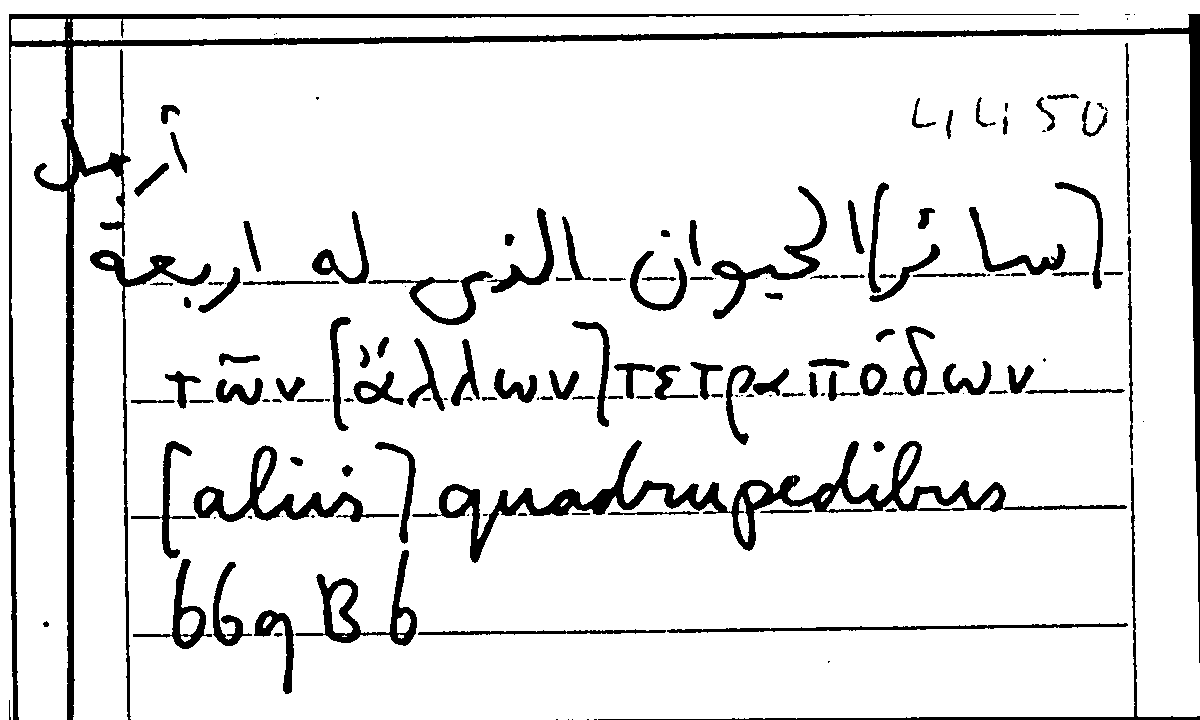 4450
[سائر] الحيوان الذى له اربعة
أرجل
τῶν [ἄλλων] τετραπόδων
[aliis] quadrupedibus
669 B 6